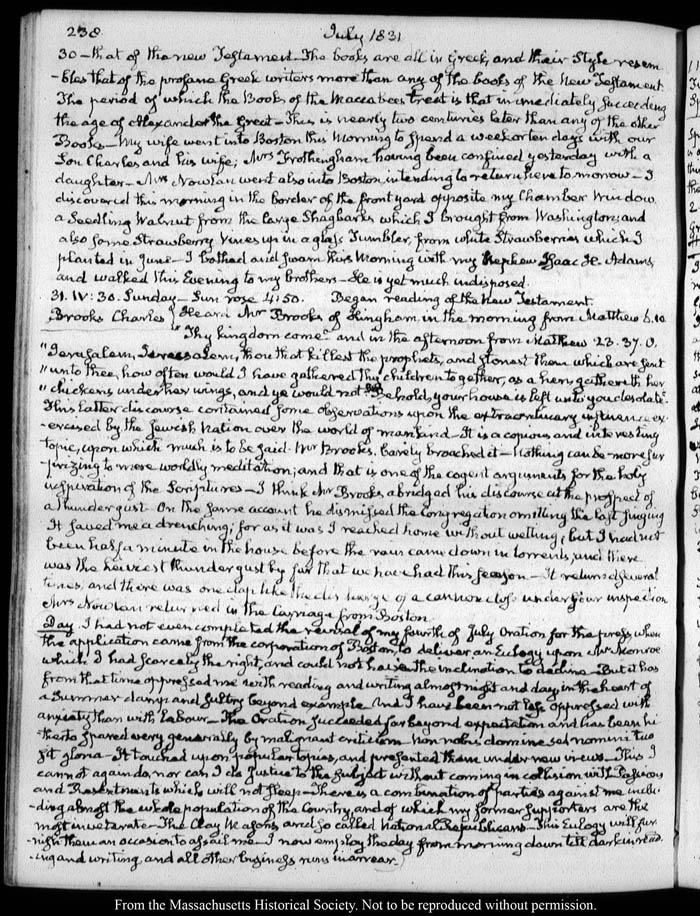 238 July 1831
30 – that of the new Testament – The books are all in Greek, and their Style resem
-bles that of the profane Greek writers more than any of the books of the New Testament
The period of which the Books of the Maccabees treat is that immediately succeeding
the age of Alexander the Great – This is nearly two centuries later than any of the other
Books – My wife went into Boston this Morning to spend a week or ten days with our
Son Charles and his wife; Mrs Frothingham having been confined yesterday with a
daughter – Mrs Nowlan went also into Boston, intending to return here to morrow – I
discovered this morning in the border of the front yard opposite my Chamber Window
a Seedling Walnut from the large Shagbarks which I brought from Washington; and
also some Strawberry Vines up in a glass Tumbler, from white Strawberries which I
planted in June – I bathed and swam this Morning with my Nephew Isaac H. Adams
and walked this Evening to my brothers – He is yet much indisposed.
31. IV: 30. Sunday – Sun rose 4:50. Began reading of the New Testament.
Brooks Charles Heard Mr Brooks of Hingham in the morning from Matthew 6.10
"Thy kingdom come" and in the afternoon from Matthew 23.37. O,
"Jerusalem, Jerusalem, thou that killest the prophets, and stonest them which are sent
"unto thee, how often would I have gathered thy children together, as a hen gathereth her
"chickens under her wings, and ye would not Behold, your house is left unto you desolate.
This latter discourse contained some observations upon the extraordinary influence ex-
-ercised by the Jewish Nation over the world of mankind – It is a copious and interesting
topic, upon which much is to be said. Mr Brooks, barely broached it – Nothing can be more sur
-prizing to mere worldly meditation; and that is one of the cogent arguments for the holy
inspiration of the Scriptures – I think Mr Brooks abridged his discourse at the prospect of
a thunder gust – On the same account he dismissed the congregation omitting the last singing
It saved me a drenching; for as it was I reached home without wetting; but I had not
been half a minute in the house before the rain came down in torrents, and there
was the heaviest thunder gust by far that we have had this season – It returned several
times, and there was one clap like the discharge of a cannon close under your inspection
Mrs Nowlan returned in the Carriage from Boston
Day. I had not even completed the revisal of my fourth of July Oration for the press when
the application came from the corporation of Boston, to deliver an Eulogy upon Mr Monroe
which I had scarcely the right, and could not have the inclination to decline – But it has
from that time oppressed me with reading and writing almost night and day in the heart of
a Summer damp and sultry beyond example. And I have been not less oppressed with
anxiety than with labour – The Oration succeeded far beyond expectation and has been hi
therto spared very generally by malignant criticism – non nobis domine sed nomini tuo
sit gloria – It touched upon popular topics, and presented them under new views – This I
cannot again do, nor can I do Justice to the subject without coming in collision with Passions
and Resentments which will not sleep – There is a combination of parties against me inclu
-ding almost the whole population of the Country, and of which my former supporters are the
most inveterate – The Clay Masons, and so called National Republicans – This Eulogy will fur
-nish them an occasion to assail me – I now employ the day from morning down till dark in read
-ing and writing, and all other business runs in arrear.
From the Massachusetts Historical Society. Not to be reproduced without permission.